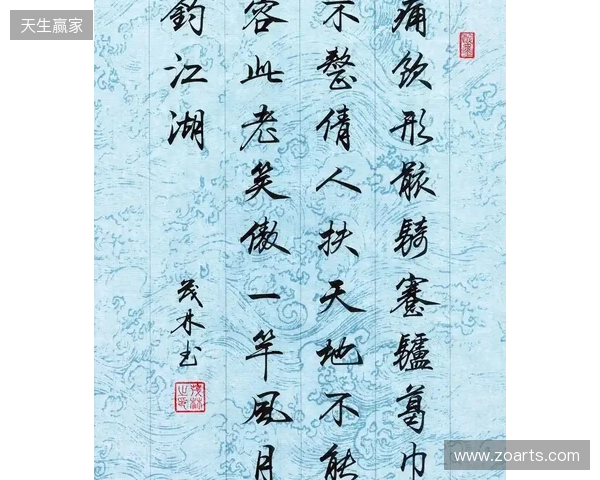 天生赢家
痛飲形骸騎蹇驢葛巾
不整倩人扶天地不能
容此老笑傲一竿風月
釣江湖
茂林书
www.zoarts.com